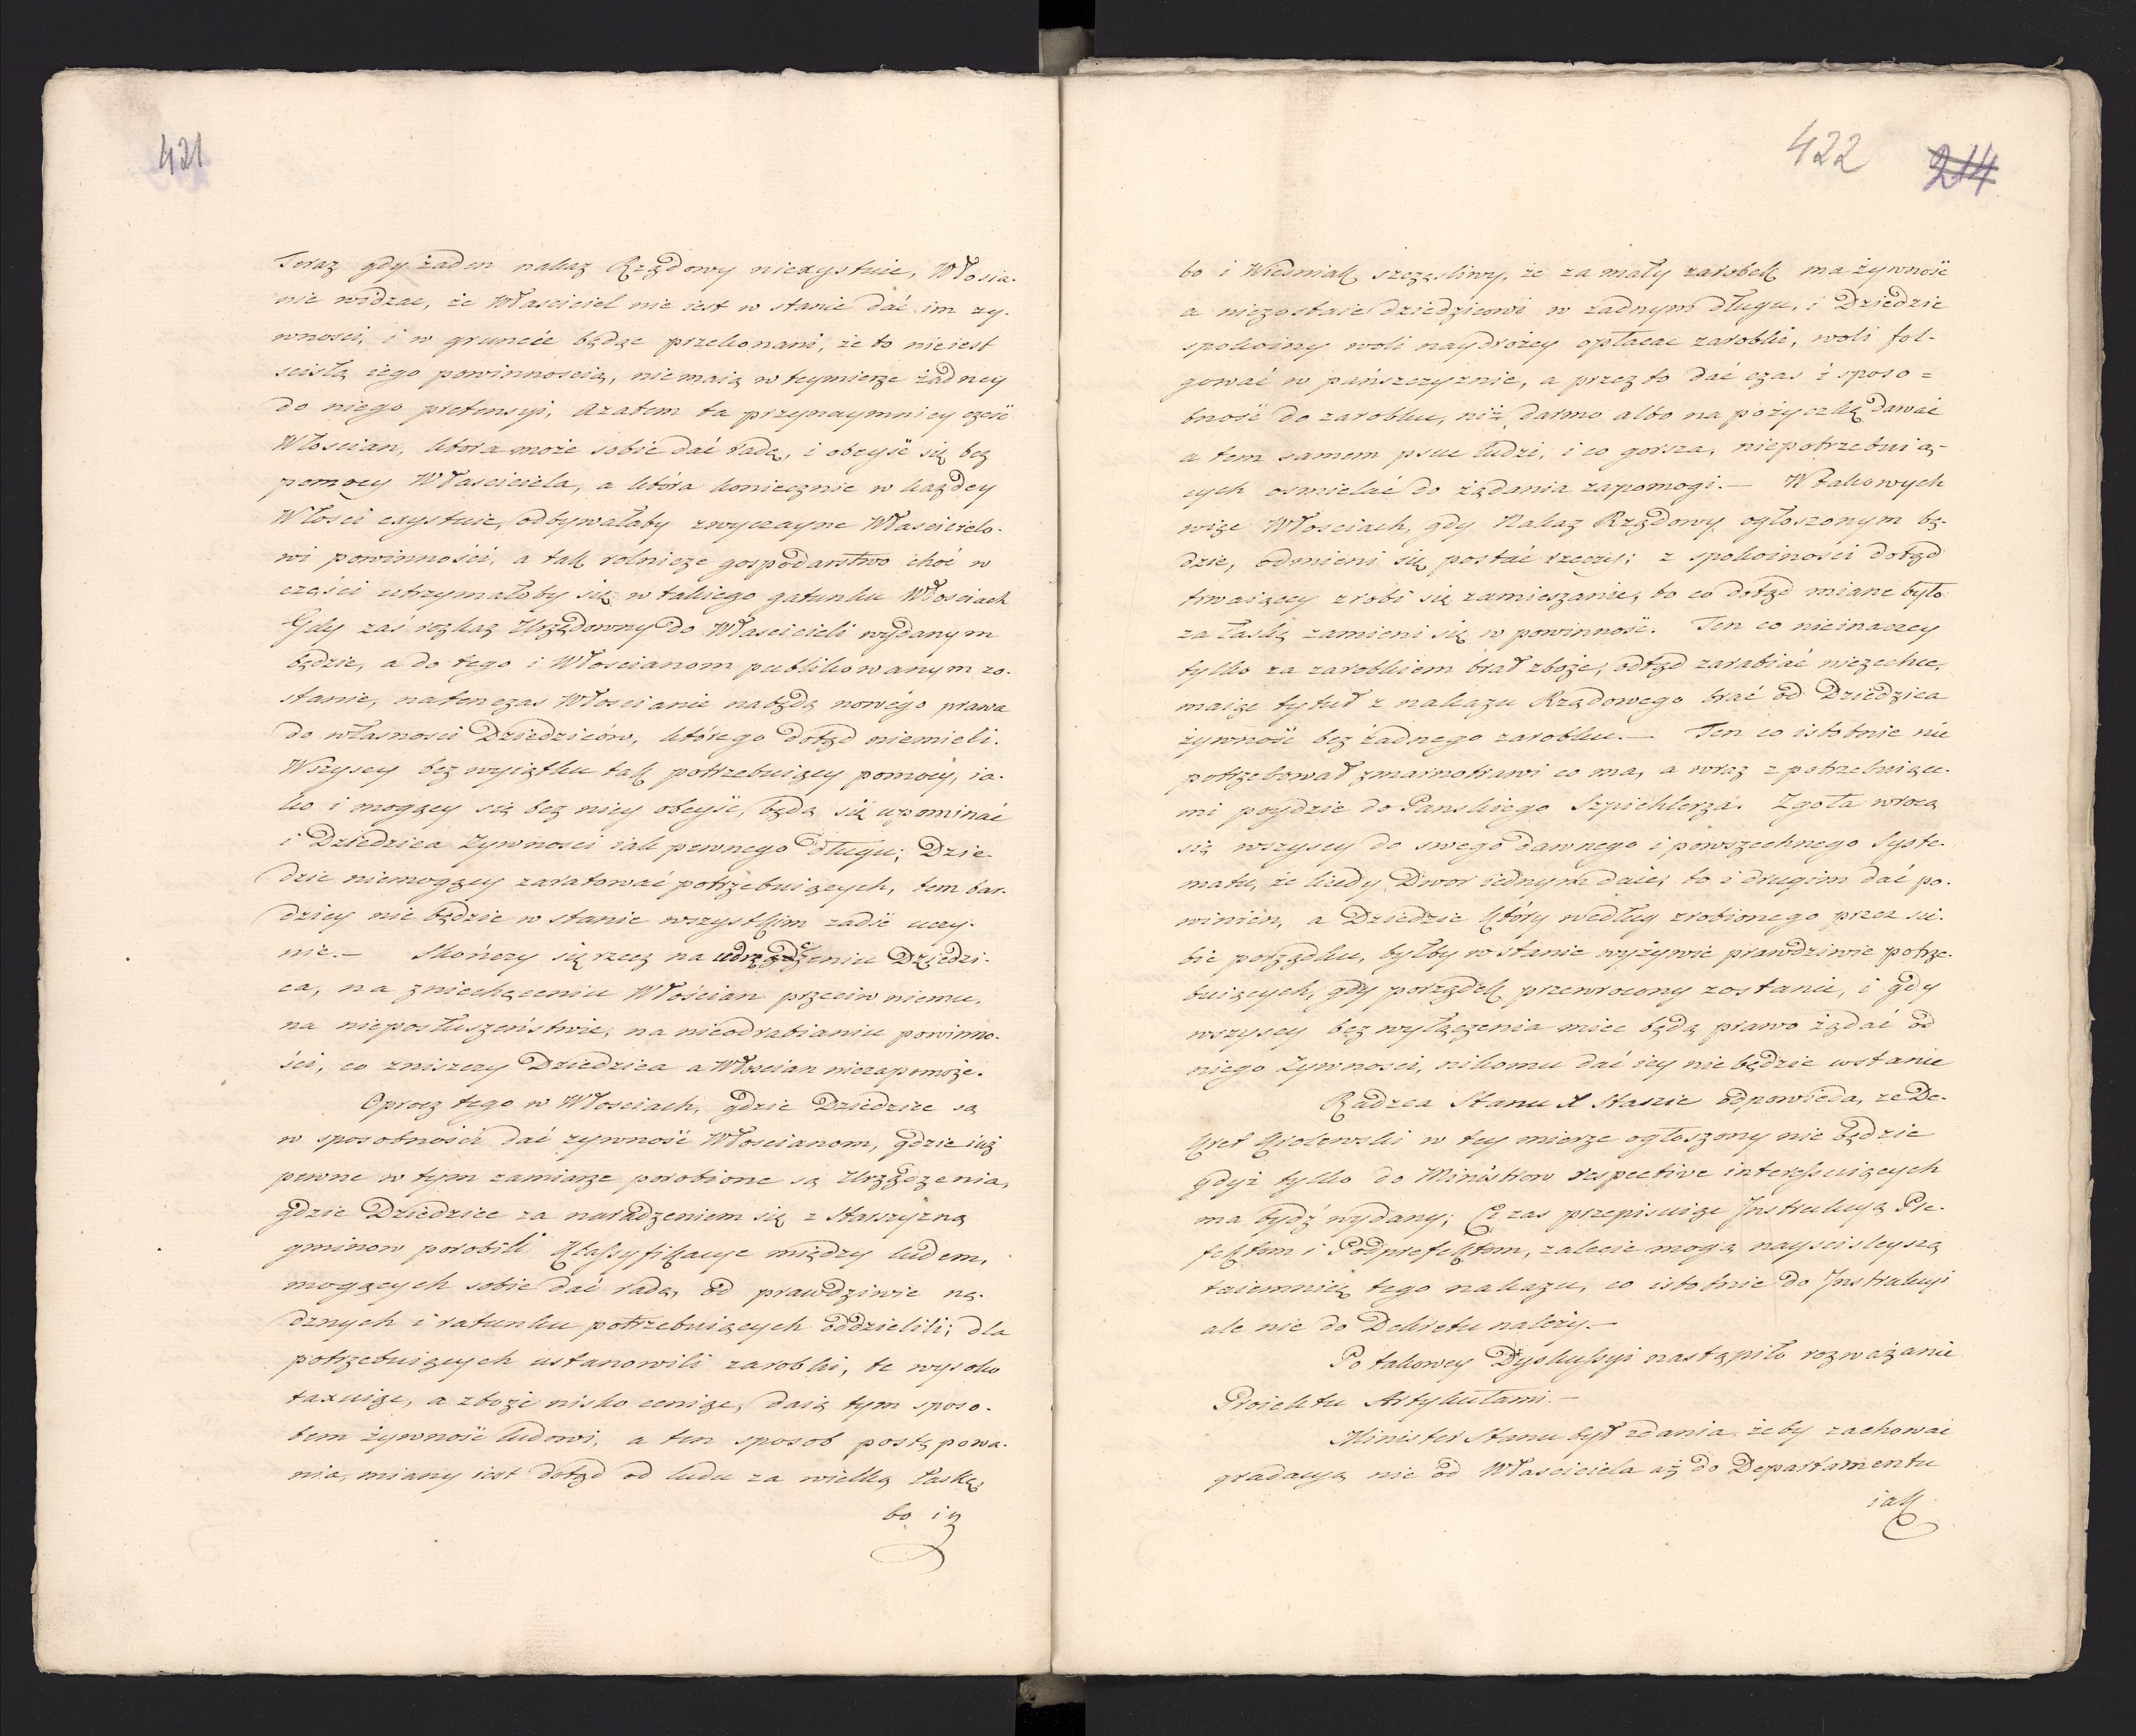 421
Teraz gdy żaden nakaz Rządowy niexystuie, Włosia-
nie widząc, że Własciciel nie iest w stanie dać im zy-
wnosci, i w gruncie będąc przekonani, że to nieiest
scisłą iego powinnoscią, niemaią w teymierze żadney
do niego pretensyi, azatem ta przynaymniey częsć
Włoscian, ktora może sobie dać radę, i obeysć się bez
pomocy Własciciela, a która koniecznie w każdey
Włosci exystuie, odbywałaby zwyczayne Własciciels-
wi powinności, a tak rolnicze gospodarstwo choć w
części utrzymałoby się w takiego gatunku Włosciach
Gdy zaś rozkaz Urzędowny do Włascicieli wydanym
będzie, a do tego i Włoscianom publikowanym zo-
stanie, natenczas Włoscianie nabędą nowego prawa
do własnosci Dziedziców, którego dotąd niemieli.
Wszyscy bez wyiątku tak potrzebuiący pomocy, ia-
ko i mogący się bez niey obeyść, będą się upominać
i Dziedzica Zywnosci iak pewnego długu; Dzie-
dzic niemogący zaratować potrzebuiących, tem bar-
dziey nie będzie w stanie wszystkim zadść uczy-
nić.- Skończy się rzecz na udręczeniu Dziedzi-
ca, na zniechęceniu Włościan przeciw niemu,
na nieposłuszeństwie, na nieodrabianiu powinno-
ści, co zniszczy Dziedzica a Włoscian niezapomoże.
Oprocz tego w Włosciach, gdzie Dziedzice są
w sposobności dać zywność Włoscianom, gdzie iuż
pewne w tym zamiarze porobione są Urządzenia,
gdzie Dziedzice za naradzeniem się z Starszyzną
gminow porobili Klassyfikacye między ludem,
mogących sobie dać radę, od prawdziwie nę-
dznych i ratunku potrzebuiących oddzielili; dla
potrzebuiących ustanowili zarobki, te wysoko
taxuiąc, a zboże nisko ceniąc, daią tym sposo-
bem żywność ludowi, a ten sposob postępowa-
nia, miany iest dotąd od ludu za wielką łaskę,
bo i
422 214
bo i Wiesniak szczęsliwy, że za mały zarobek ma żywność
a niezostaie dziedzicowi w żadnym długu, i Dziedzic
spokoiny woli naydrożey opłacać zarobki, woli fol-
gować w pańszczyznie, a przez to dać czas i sposo=
bność do zarobku, niż darmo albo na pożyczkę dawać
a tem samem psuć ludzi, i co gorsza, niepotrzebuią-
cych osmielać do żądania zapomogi.- W takowych
więc Włosciach, gdy Nakaz Rządowy ogłoszonym bę-
dzie, odmieni się postać rzeczy; z spokoiności dotąd
trwaiącey zrobi się zamieszanie, bo co dotąd miane było
za łaskę zamieni się w powinność. Ten co nieinaczey
tylko za zarobkiem brał zboże, odtąd zarabiać niezechce,
maiąc tytuł z nakazu Rządowego brać od Dziedzica
żywność bez żadnego zarobku.- Ten co istotnie nie
potrzebował zmarnotrawi co ma, a wraz z potrzebuiące-
mi poydzie do Panskiego Szpichlerza. Zgoła wrocą
się wszyscy do swego dawnego i powszechnego Syste-
matu, że kiedy Dwor iednym daie, to i drugim dać po-
winien, a Dziedzic który według zrobionego przez sie-
bie porządku, byłby w stanie wyżywić prawdziwie potrze-
buiących, gdy porządek przewrocony zostanie, i gdy
wszyscy bez wyłączenia mieć będą prawo żądać od
niego Zywnosci, nikomu dać iey nie będzie wstanie
Radzca Stanu X Staszic odpowieda, ze De-
kret Krolewski w tey mierze ogłoszony nie będzie
gdyż tylko do Ministrow respective interessuiących
ma bydź wydany; Ci zas przepisuiąc Instrukcyą Pre-
fektom i Podprefektom, zalecić mogą nayscisleyszą
taiemnicę tego nakazu, co istotnie do Instrukcyi
ale nie do Dekretu należy.-
Po takowey Dyskussyi nastąpiło rozważanie
Proiektu Artykułami.-
Minister Stanu był zdania, żeby zachować
gradacyą nie od Własciciela aż do Departamentu
iak